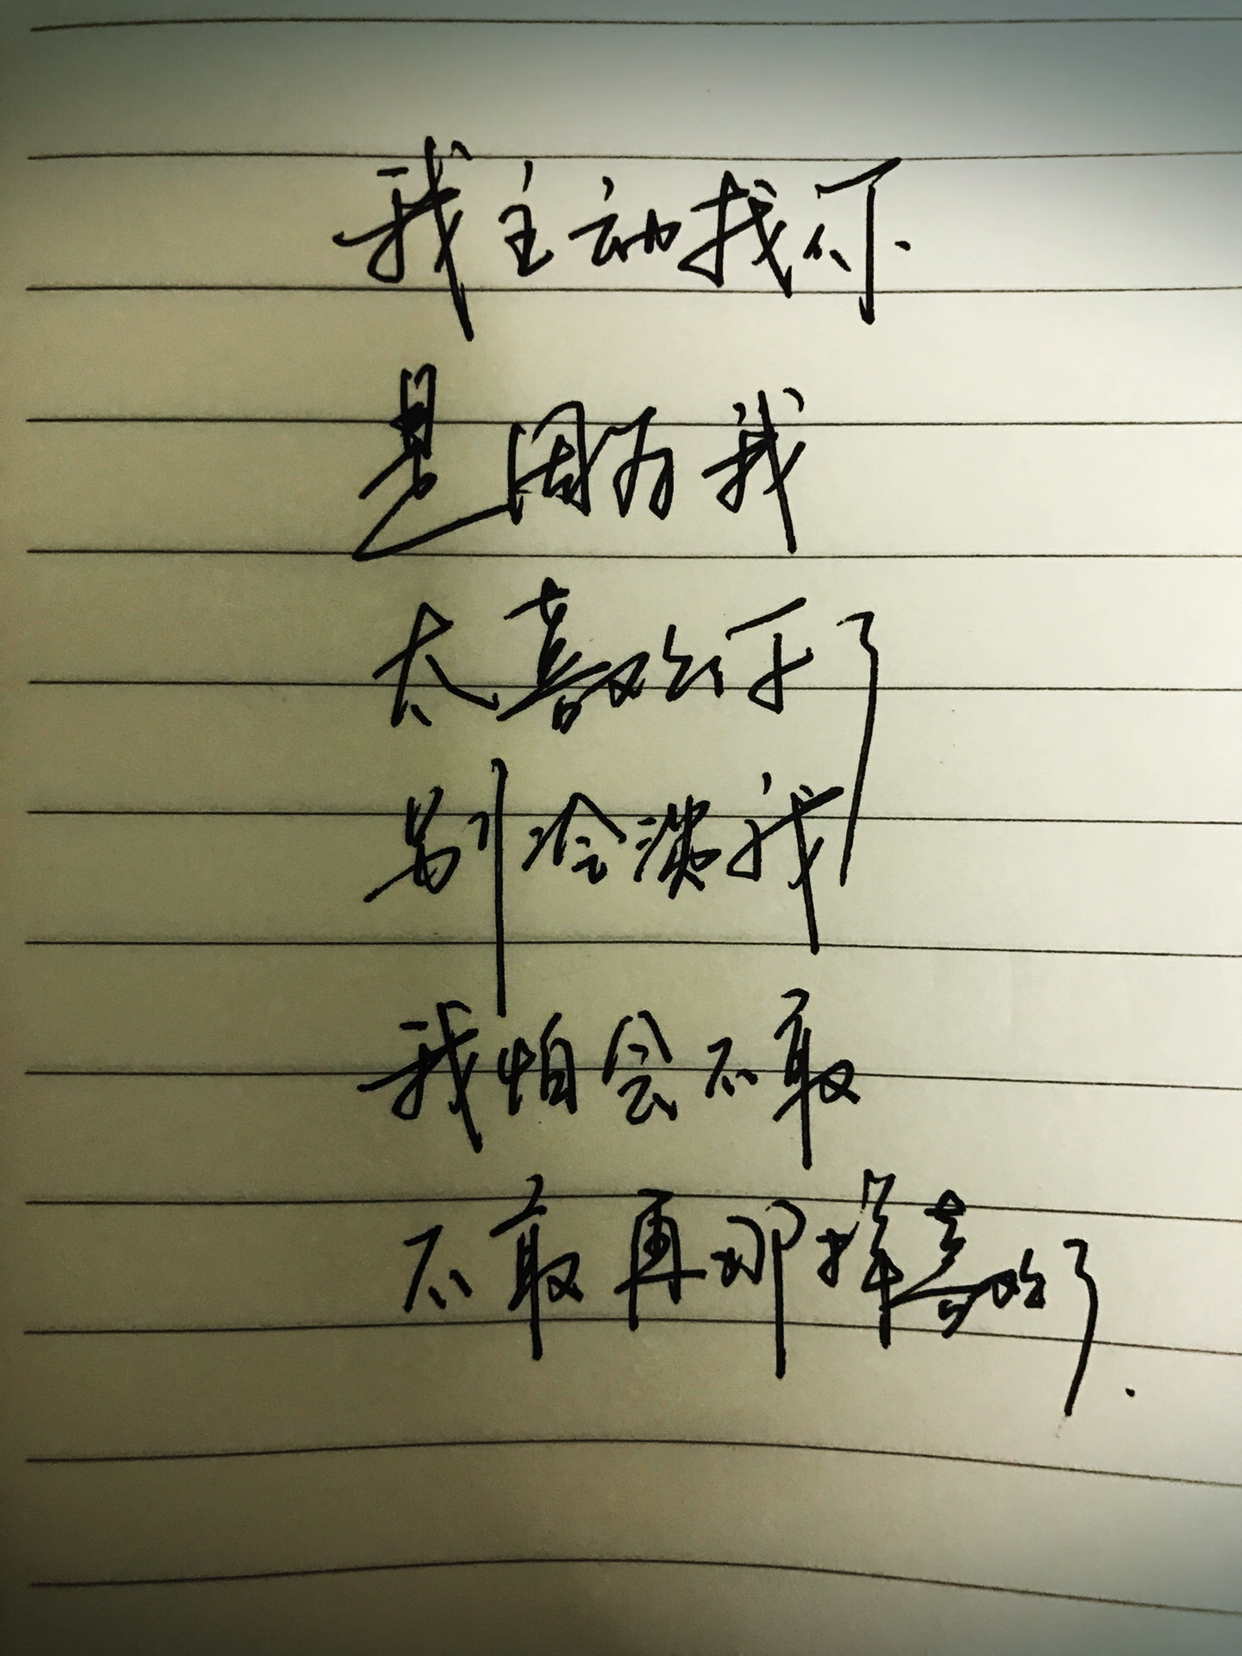 我主动找你
是因为我
太喜欢你了
别冷淡我
我怕会不敢
不敢再那样喜欢了.